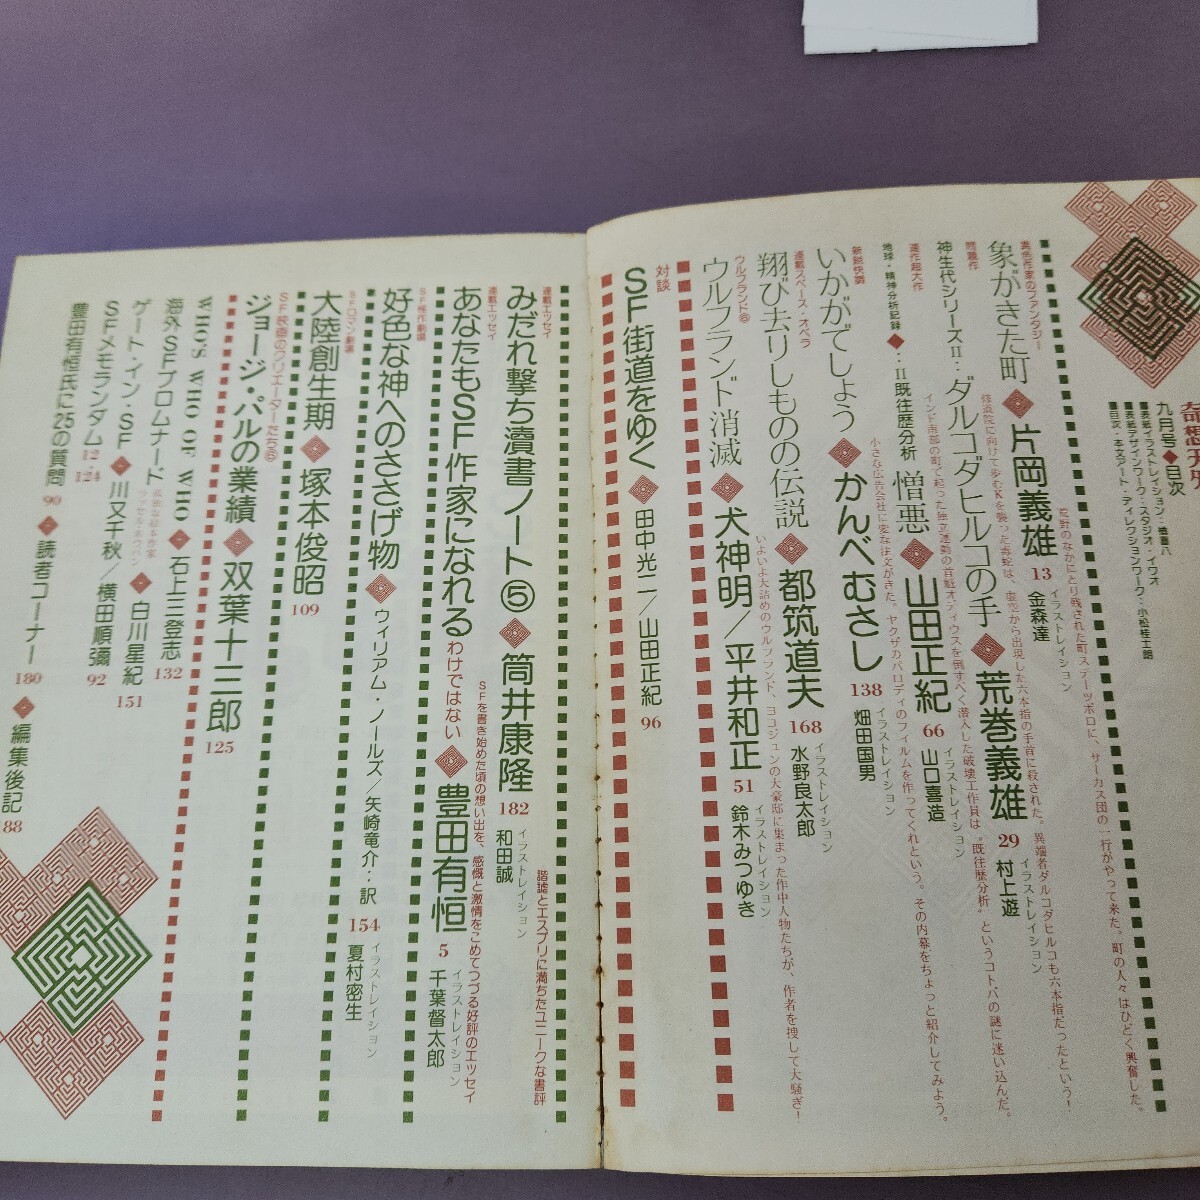 奇想天外
九月号◆目次
■表紙イラストレイション・楢喜八
■表紙デザインワーク：スタジオ・イワオ
■目次・本文アート・ディレクションワーク：小松桂士朗
異色作家のファンタジー
象がきた町◆片岡義雄 13 イラストレイション 金森達
荒野のなかにとり残された町ステーツボロに、サーカス団の一行がやって来た。町の人々はひどく興奮した。
問題作
神生代シリーズⅡ：ダルコダヒルコの手◆荒巻義雄 29 イラストレイション 村上遊
修道院に向けて歩むKを襲った毒蛇は、虚空から出現した六本指の手首に殺された。異端者ダルコダヒルコも六本指だったという！
連作超大作
地球・精神分析記録◆：Ⅱ既往歴分析 憎悪◆山田正紀 66 イラストレイション 山口喜造
インド南部の町で起った独立運動の首班オディウスを倒すべく潜入した破壊工作員は〝既往歴分析〟というコトバの謎に迷い込んだ。
新鋭快調
いかがでしょう◆かんべむさし 138 イラストレイション 畑田国男
小さな広告会社に変な注文がきた。ヤクザのパロディのフィルムを作ってくれという。その内幕をちょっと紹介してみよう。
連載スペース・オペラ
翔び去りしものの伝説◆都筑道夫 168 イラストレイション 水野良太郎
ウルフランド⑥
ウルフランド消滅◆犬神明／平井和正 51 イラストレイション 鈴木みつゆき
いよいよ大詰めのウルフランド、ヨコジュンの大豪邸に集まった作中人物たちが、作者を捜して大騒ぎ！
対談
SF街道をゆく◆田中光二／山田正紀 96
連載エッセイ
みだれ撃ち瀆書ノート⑤◆筒井康隆 182 イラストレイション 和田誠
諧謔とエスプリに満ちたユニークな書評
連載エッセイ
あなたもSF作家になれるわけではない◆豊田有恒 5 イラストレイション 千葉督太郎
SFを書き始めた頃の想い出を、感慨と激情をこめてつづる好評のエッセイ
SF傑作劇場
好色な神へのささげ物◆ウィリアム・ノールズ／矢崎竜介：訳 154 イラストレイション 夏村密生
SFロマン劇場
大陸創生期◆塚本俊昭 109
SF映画のクリエーターたち⑥
ジョージ・パルの業績◆双葉十三郎 125
WHO'S WHO OF WHO◆石上三登志 132
海外SFプロムナード 孤独な絵本作家 ラッセル・ホウバン◆白川星紀 151
ゲート・イン・SF◆川又千秋／横田順彌 92
SFメモランダム 12・124
豊田有恒氏に25の質問 90◆読者コーナー 180◆編集後記 188